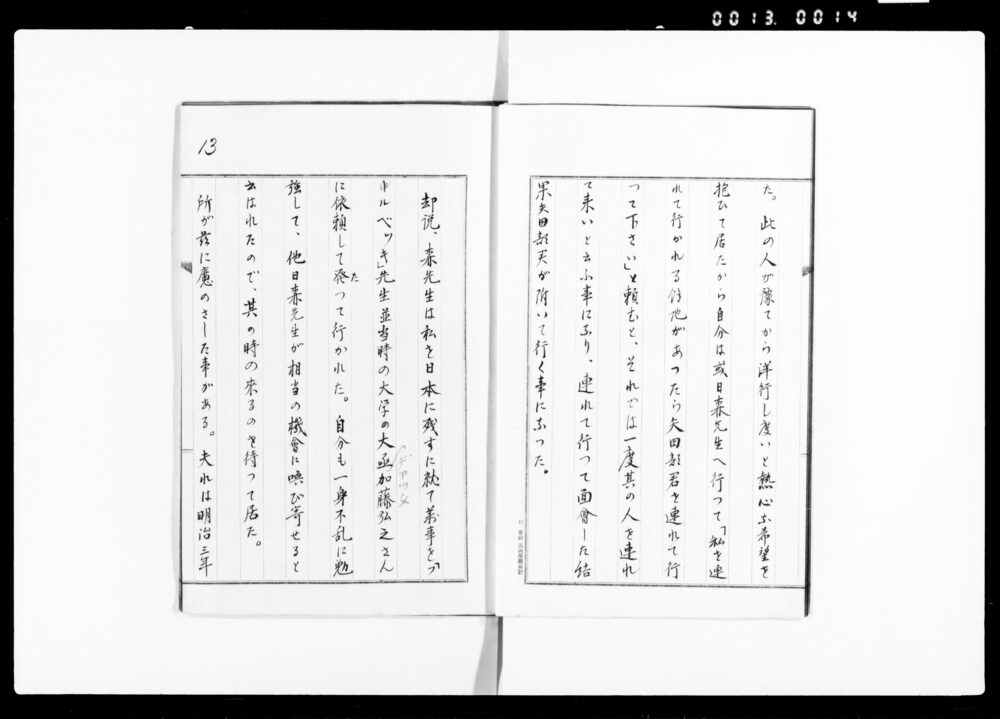 0013.0014
た。此の人が豫てから洋行し度いと熱心な希望を
抱ひて居たから自分は或日森先生へ行つて「私を連
れて行かれる餘地があつたら矢田部君を連れて行
つて下さい」と頼むと、それでは一度其の人を連れ
て来いと云ふ事になり、連れて行つて面會した結
果矢田部夫が附いて行く事になつた。
13
却説、森先生は私を日本に残すに就て萬事を「フ
ルベツキ」先生並当時の大学の大丞加藤弘之さん
に依頼して発つて行かれた。自分も一身不乱に勉
た
強して、他日森先生が相当の機會に喚び寄せると
云はれたので、其の時の来るのを待つて居た。
所が茲に魔のさした事がある。夫れは明治三年